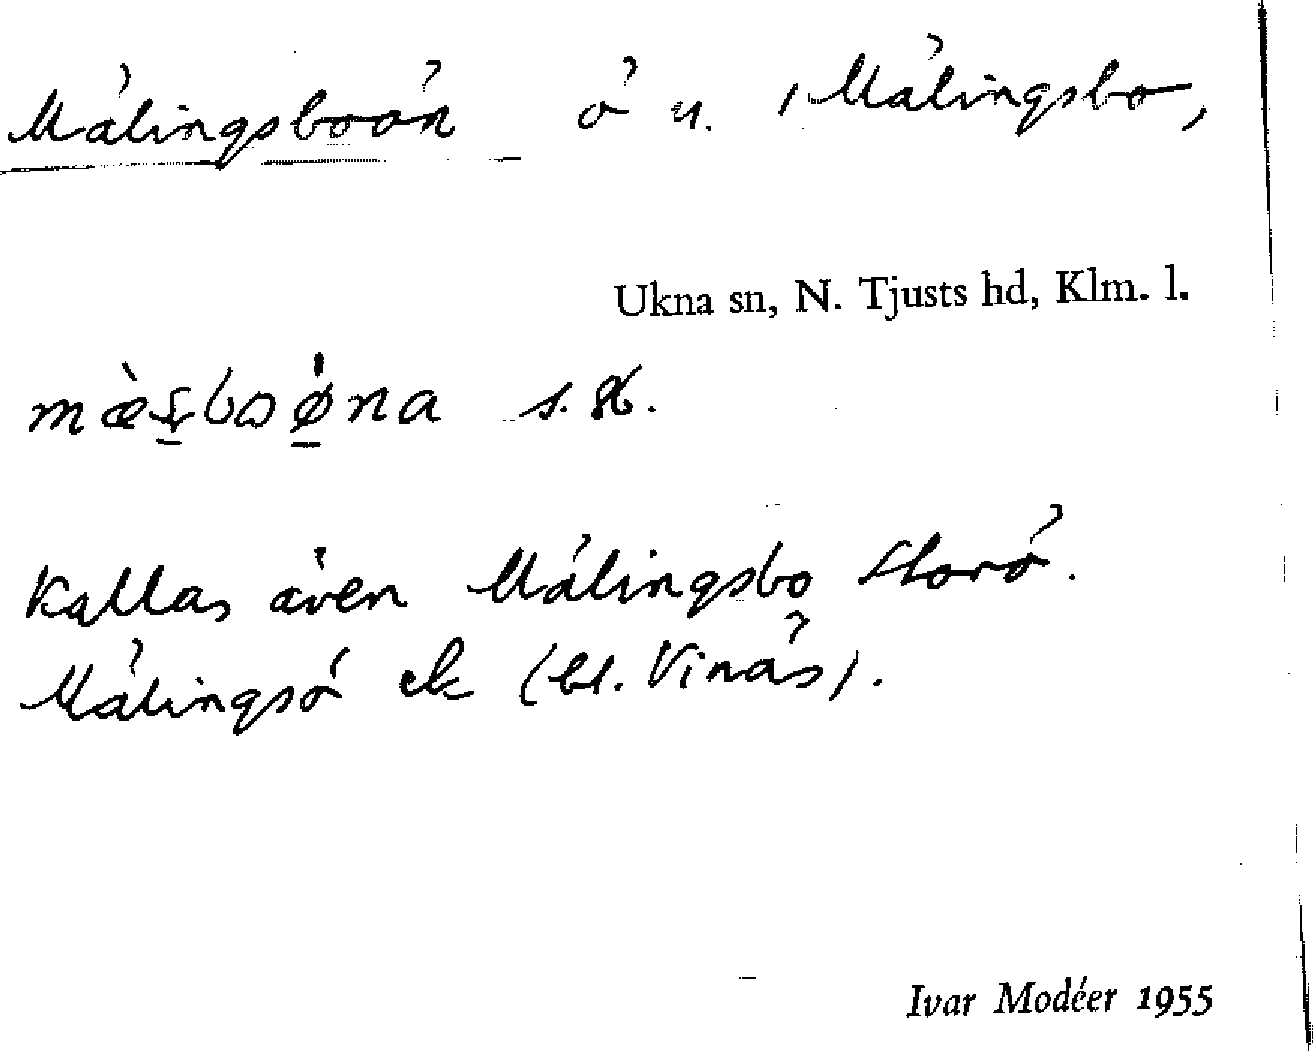 Målingsboån å u. Målingsbo,
Ukna sn, N. Tjusts hd, Klm. l.
Kallas även Målingsbo Storå.
Målingså ek (bl. Vinås).
Ivar Modéer 1955